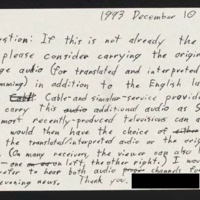 1993 December 10
ation: If this is not already the
please consider carrying the origin
ge audio (for translated and interpreted
mming) in addition to the English la
Cable- and similar-service provid
carry this additional audio as S
most recently-produced televisions can
would then have the choice of
the translated/interpreted audio or the orig
(On many receivers, the viewer can also
on left, the other right.) I wou
refer to hear both audio channels fo
evening news. Thank you.